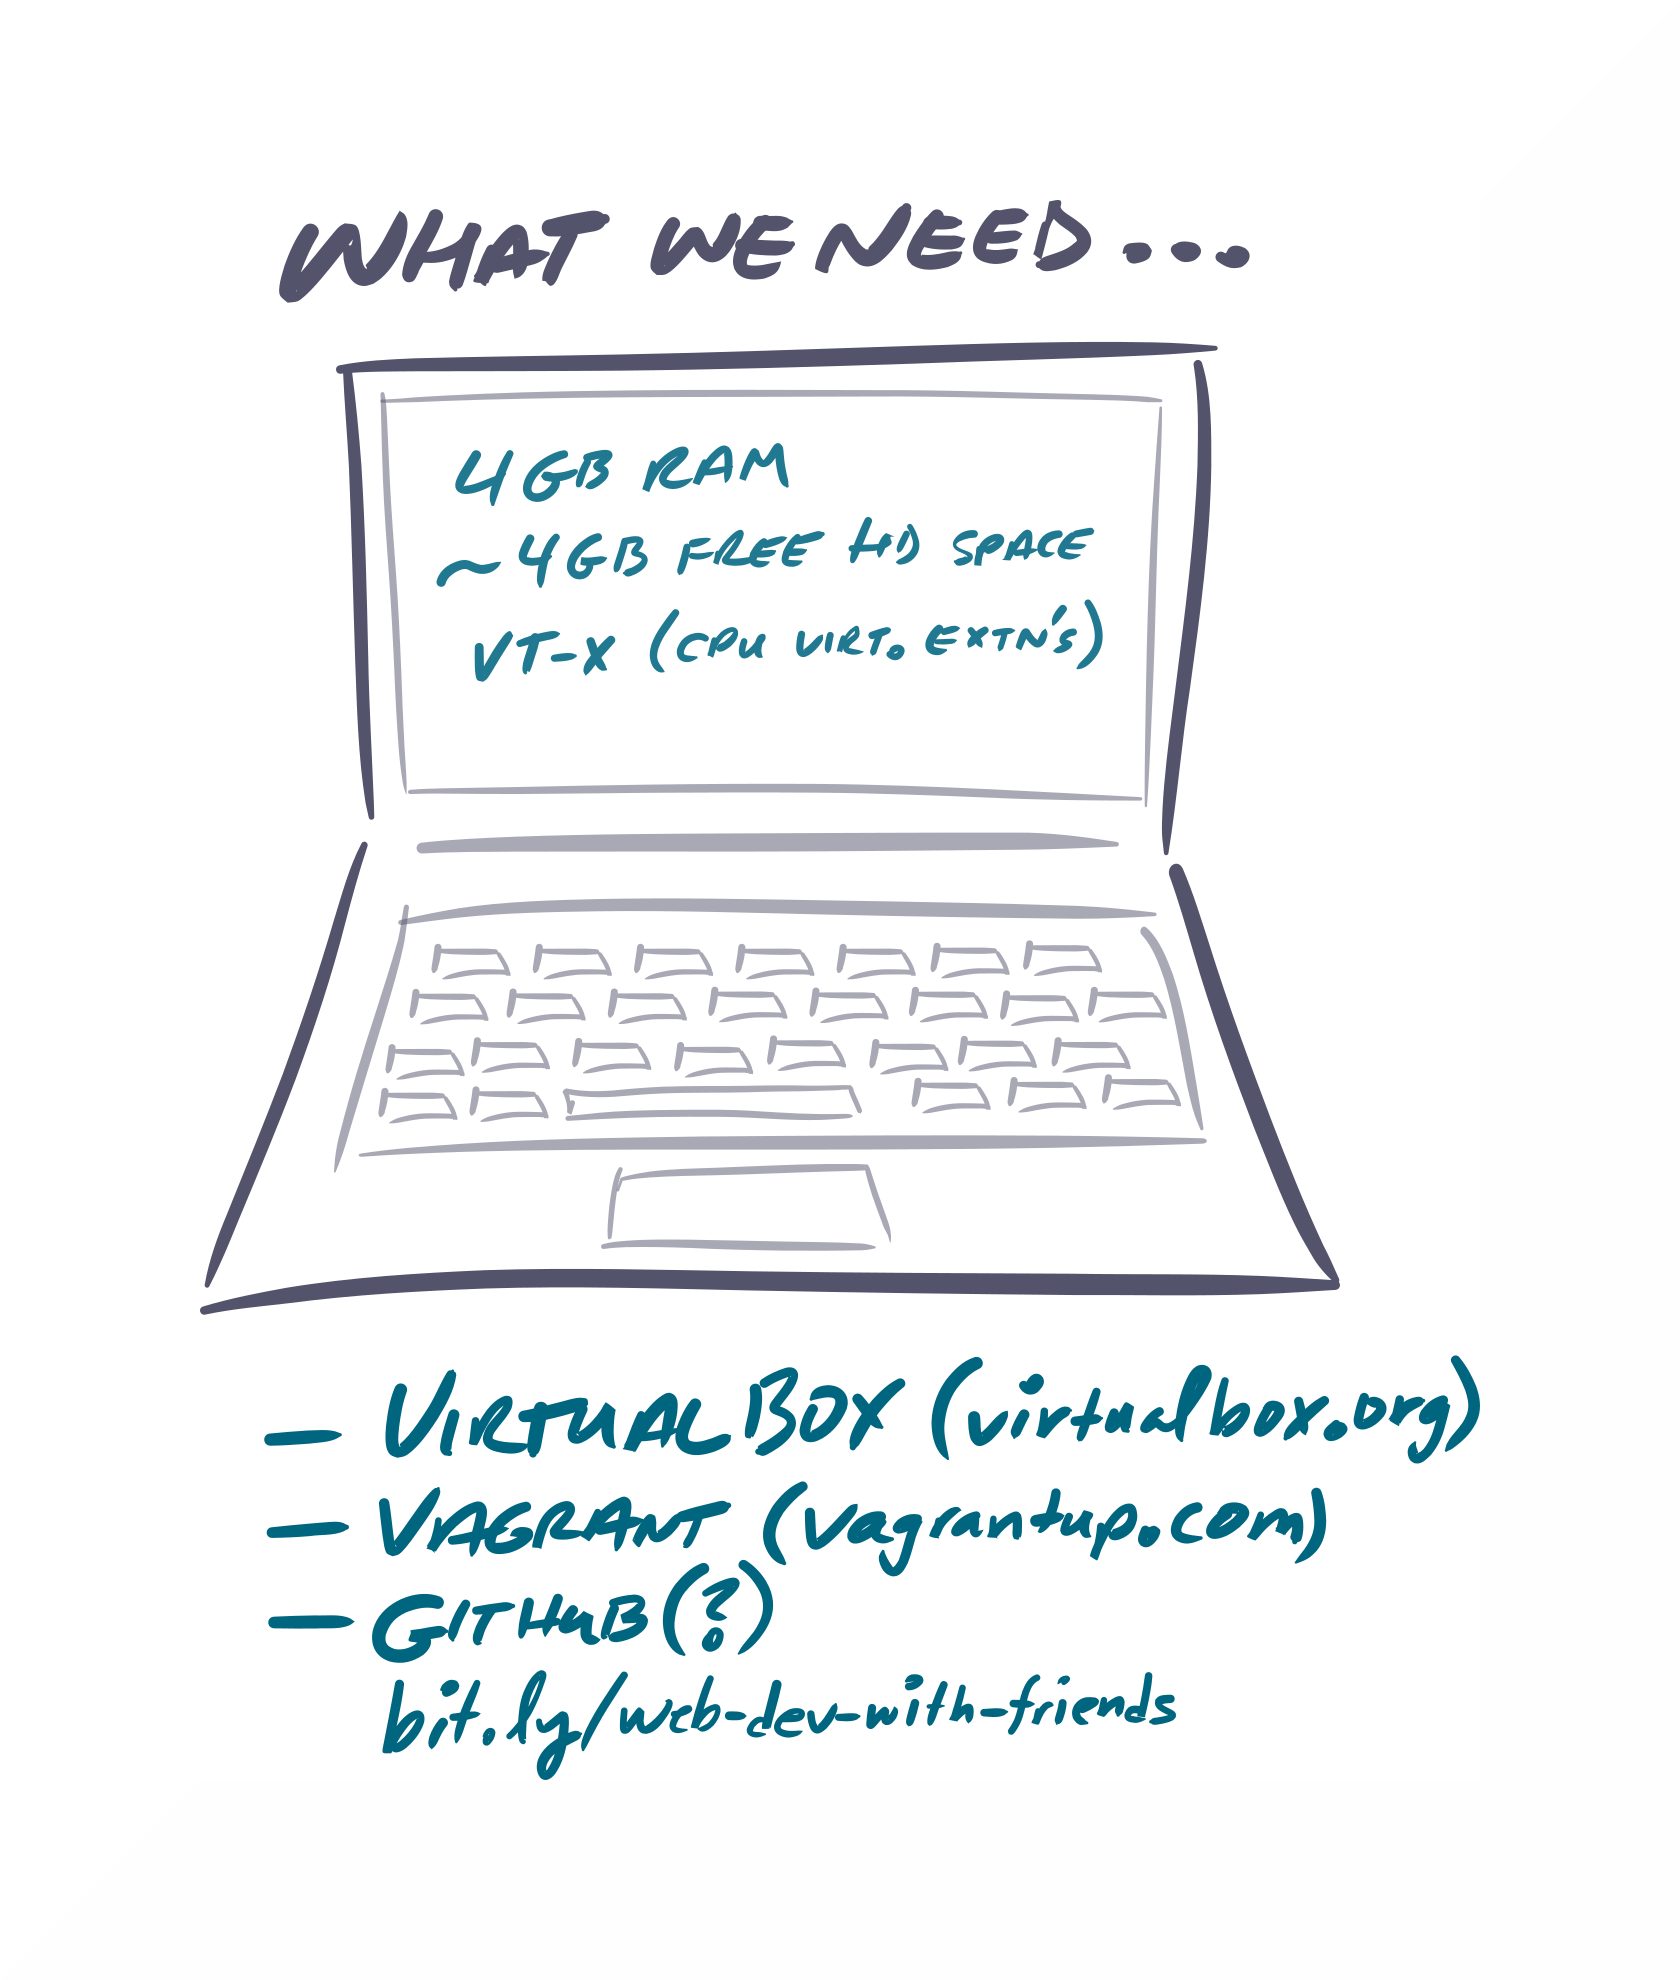 WHAT WE NEED...
4GB RAM
~4GB FREE HD SPACE
VT-X (CPU VIRT. EXTN'S)
- VIRTUALBOX (virtualbox.org)
- VAGRANT (vagrantup.com)
- GITHUB (?)
bit.ly/web-dev-with-friends